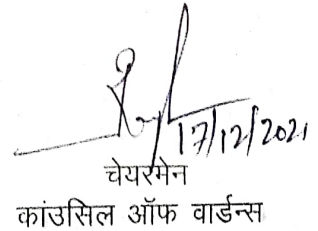 17/12/2021
चेयरमेन
कांउसिल ऑफ वार्डन्स